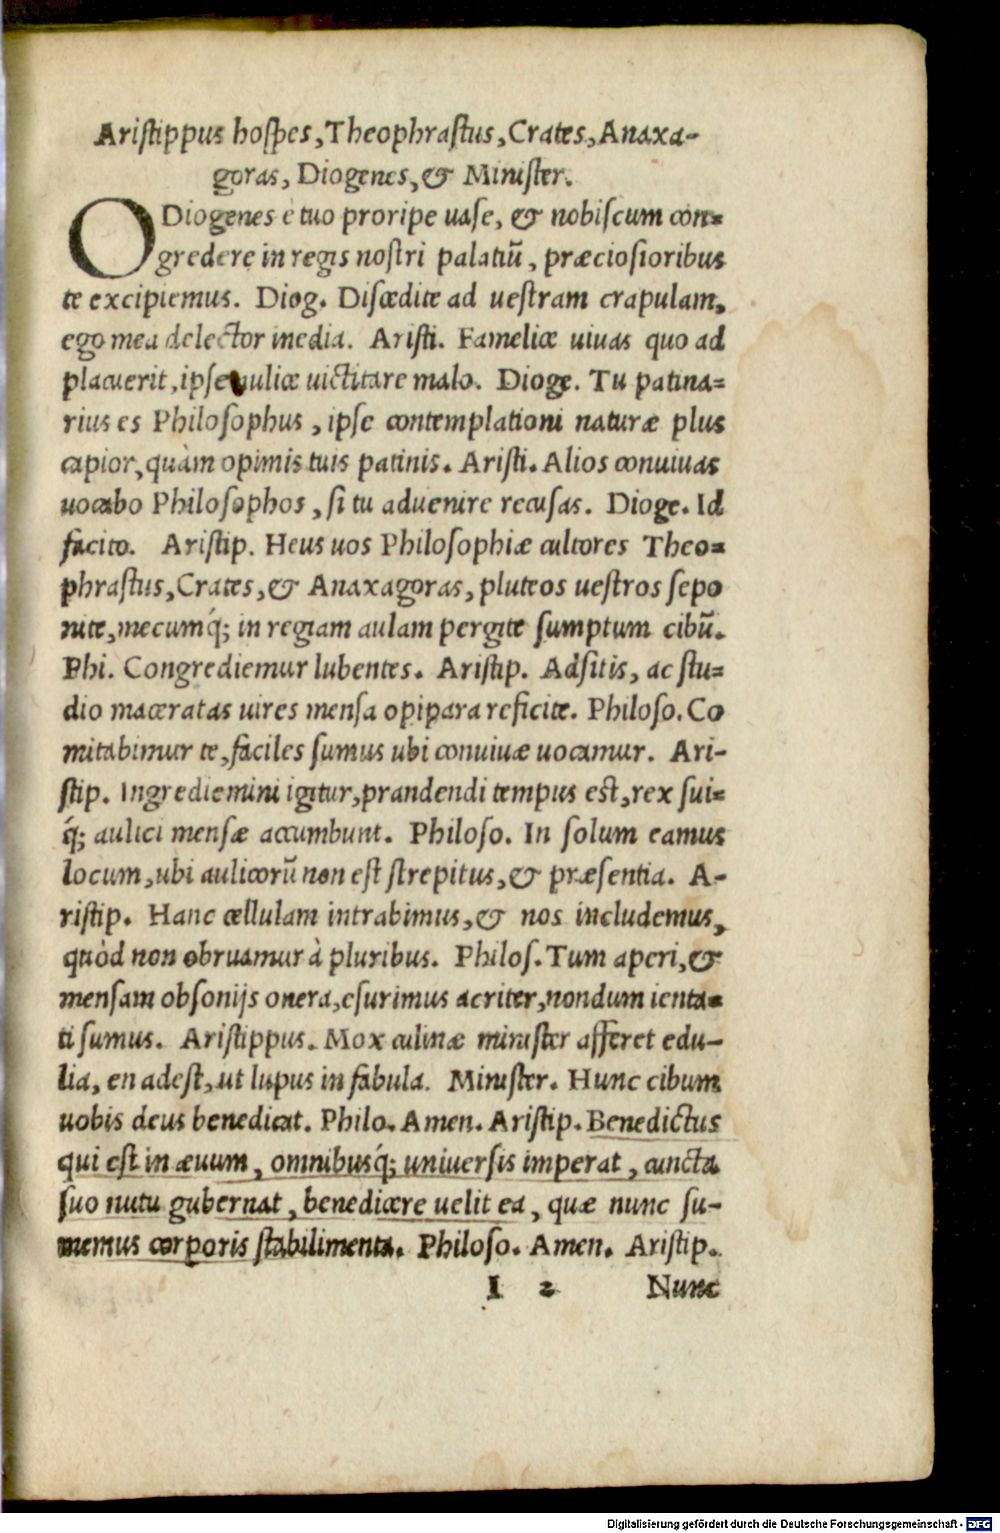 Aristippus hospes, Theophrastus, Crates, Anaxa-
goras, Diogenes, & Minister.
O Diogenes è tuo proripe uase, & nobiscum con=
gredere in regis nostri palatiũ, præciosioribus
te excipiemus. Diog. Discedite ad uestram crapulam,
ego mea delector inedia. Aristi. Famelice uiuas quo ad
placuerit, ipse aulice uictitare malo. Dioge. Tu patina=
rius es Philosophus, ipse contemplationi naturæ plus
capior, quàm opimis tuis patinis. Aristi. Alios conuiuas
uocabo Philosophos, si tu aduenire recusas. Dioge. Id
facito. Aristip. Heus uos Philosophiæ cultores Theo=
phrastus, Crates, & Anaxagoras, pluteos uestros sepo
nite, mecumq́; in regiam aulam pergite sumptum cibũ.
Phi. Congrediemur lubentes. Aristip. Adsitis, ac stu=
dio maceratas uires mensa opipara reficite. Philoso. Co
mitabimur te, faciles sumus ubi conuiuæ uocamur. Ari-
stip. Ingrediemini igitur, prandendi tempus est, rex sui=
q́; aulici mensæ accumbunt. Philoso. In solum eamus
locum, ubi aulicorũ non est strepitus, & præsentia. A-
ristip. Hanc cellulam intrabimus, & nos includemus,
quòd non obruamur à pluribus. Philos. Tum aperi, &
mensam obsonijs onera, esurimus acriter, nondum ienta=
ti sumus. Aristippus. Mox culinæ minister afferet edu-
lia, en adest, ut lupus in fabula. Minister. Hunc cibum
uobis deus benedicat. Philo. Amen. Aristip. Benedictus
qui est in æuum, omnibusq́; uniuersis imperat, cuncta
suo nutu gubernat, benedicere uelit ea, quæ nunc su-
memus corporis stabilimenta. Philoso. Amen. Aristip.
I 2 Nunc
Digitalisierung gefördert durch die Deutsche Forschungsgemeinschaft - DFG